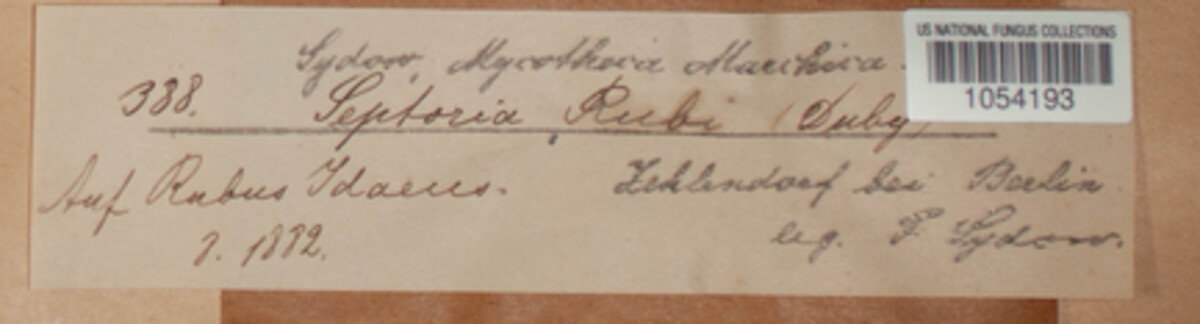 US NATIONAL FUNGUS COLLECTIONS
1054193
Sydow, Mycotheca Marchica.
338. Septoria Rubi (Duby)
Auf Rubus Idaeus. Zehlendorf bei Berlin
8. 1882. leg. P. Sydow.